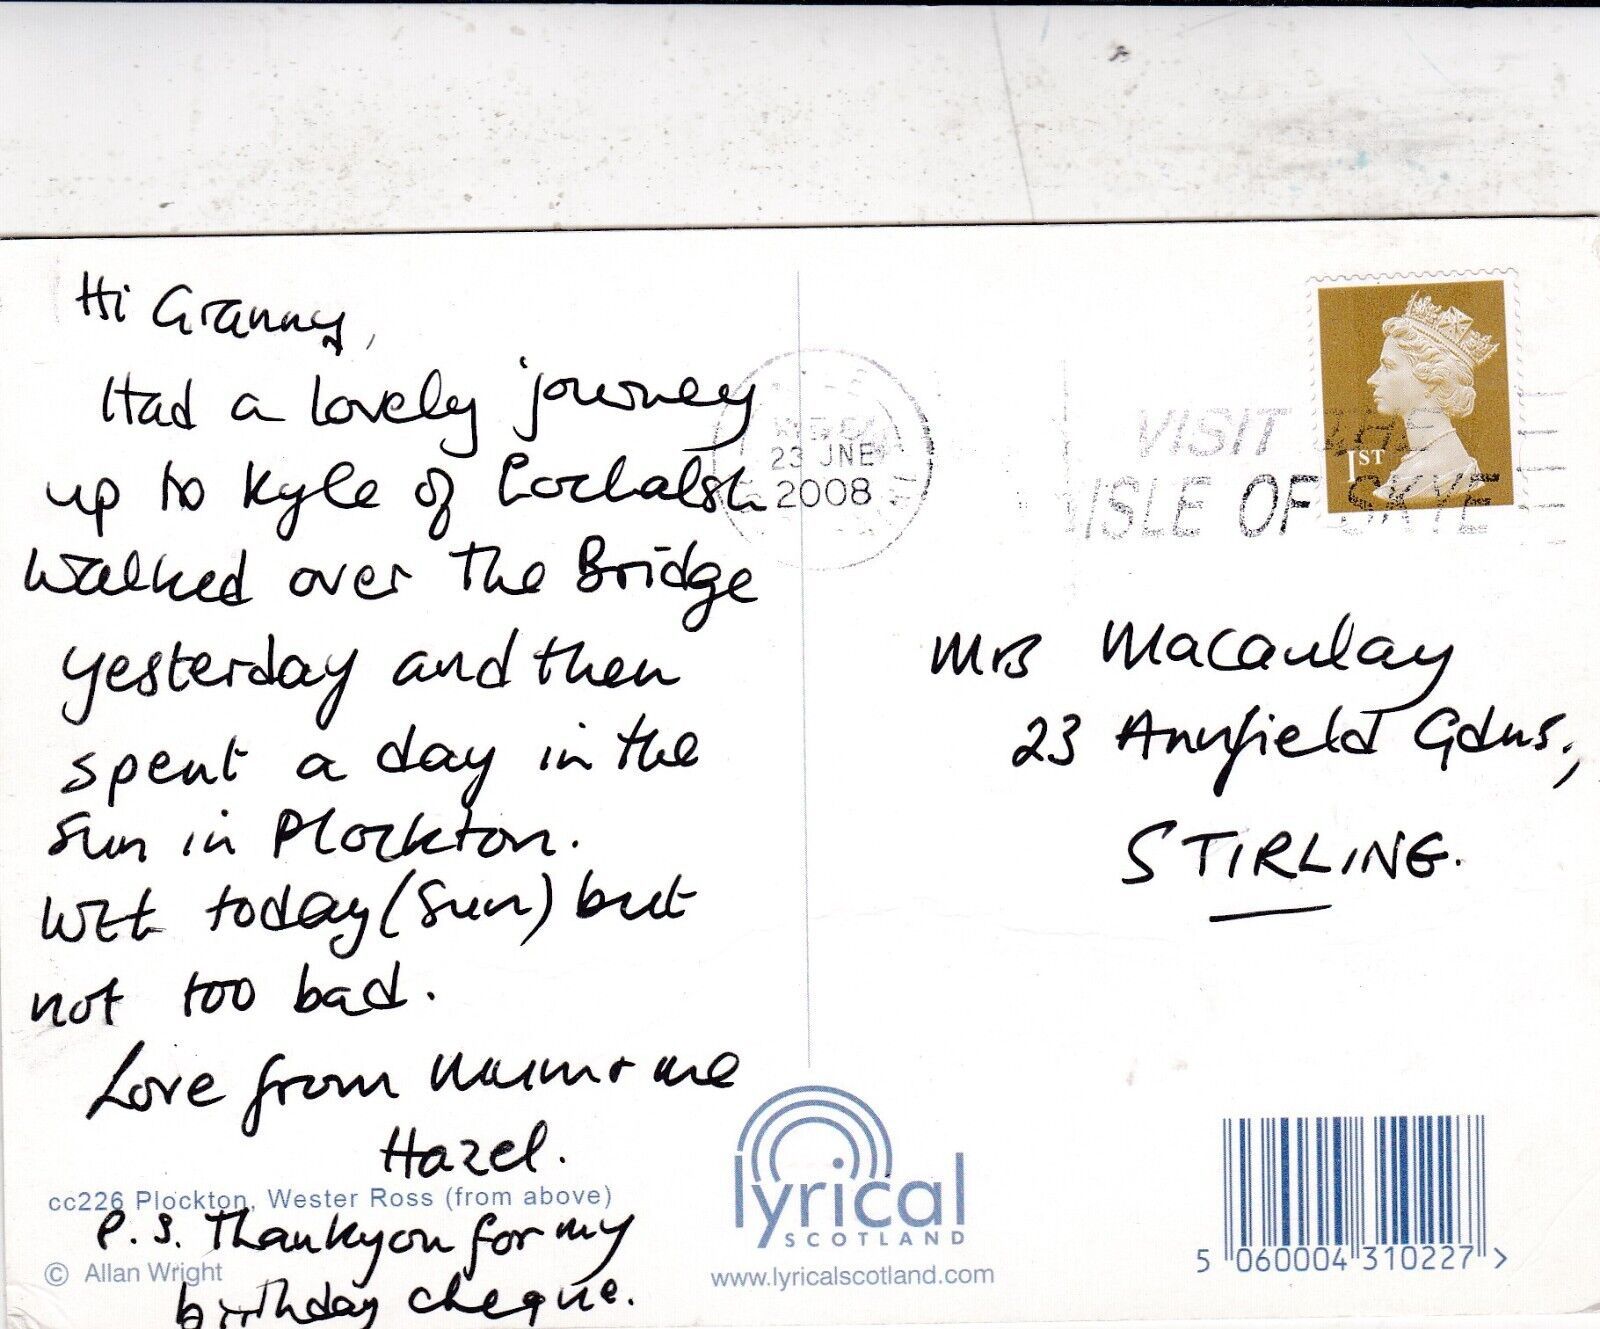 Hi Granny,
Had a lovely journey
up to Kyle of Lochalsh
Walked over the Bridge
yesterday and then
spent a day in the
Sun in Plockton.
Wet today (Sun) but
not too bad.
Love from Mum + me
Hazel.
cc226 Plockton, Wester Ross (from above)
P.S. Thankyou for my
© Allan Wright
birthday cheque.
23 JNE
2008
VISIT THE
ISLE OF SKYE
1ST
Mrs Macaulay
23 Annfield Gdns.,
STIRLING.
lyrical
SCOTLAND
www.lyricalscotland.com
5 060004 310227 >